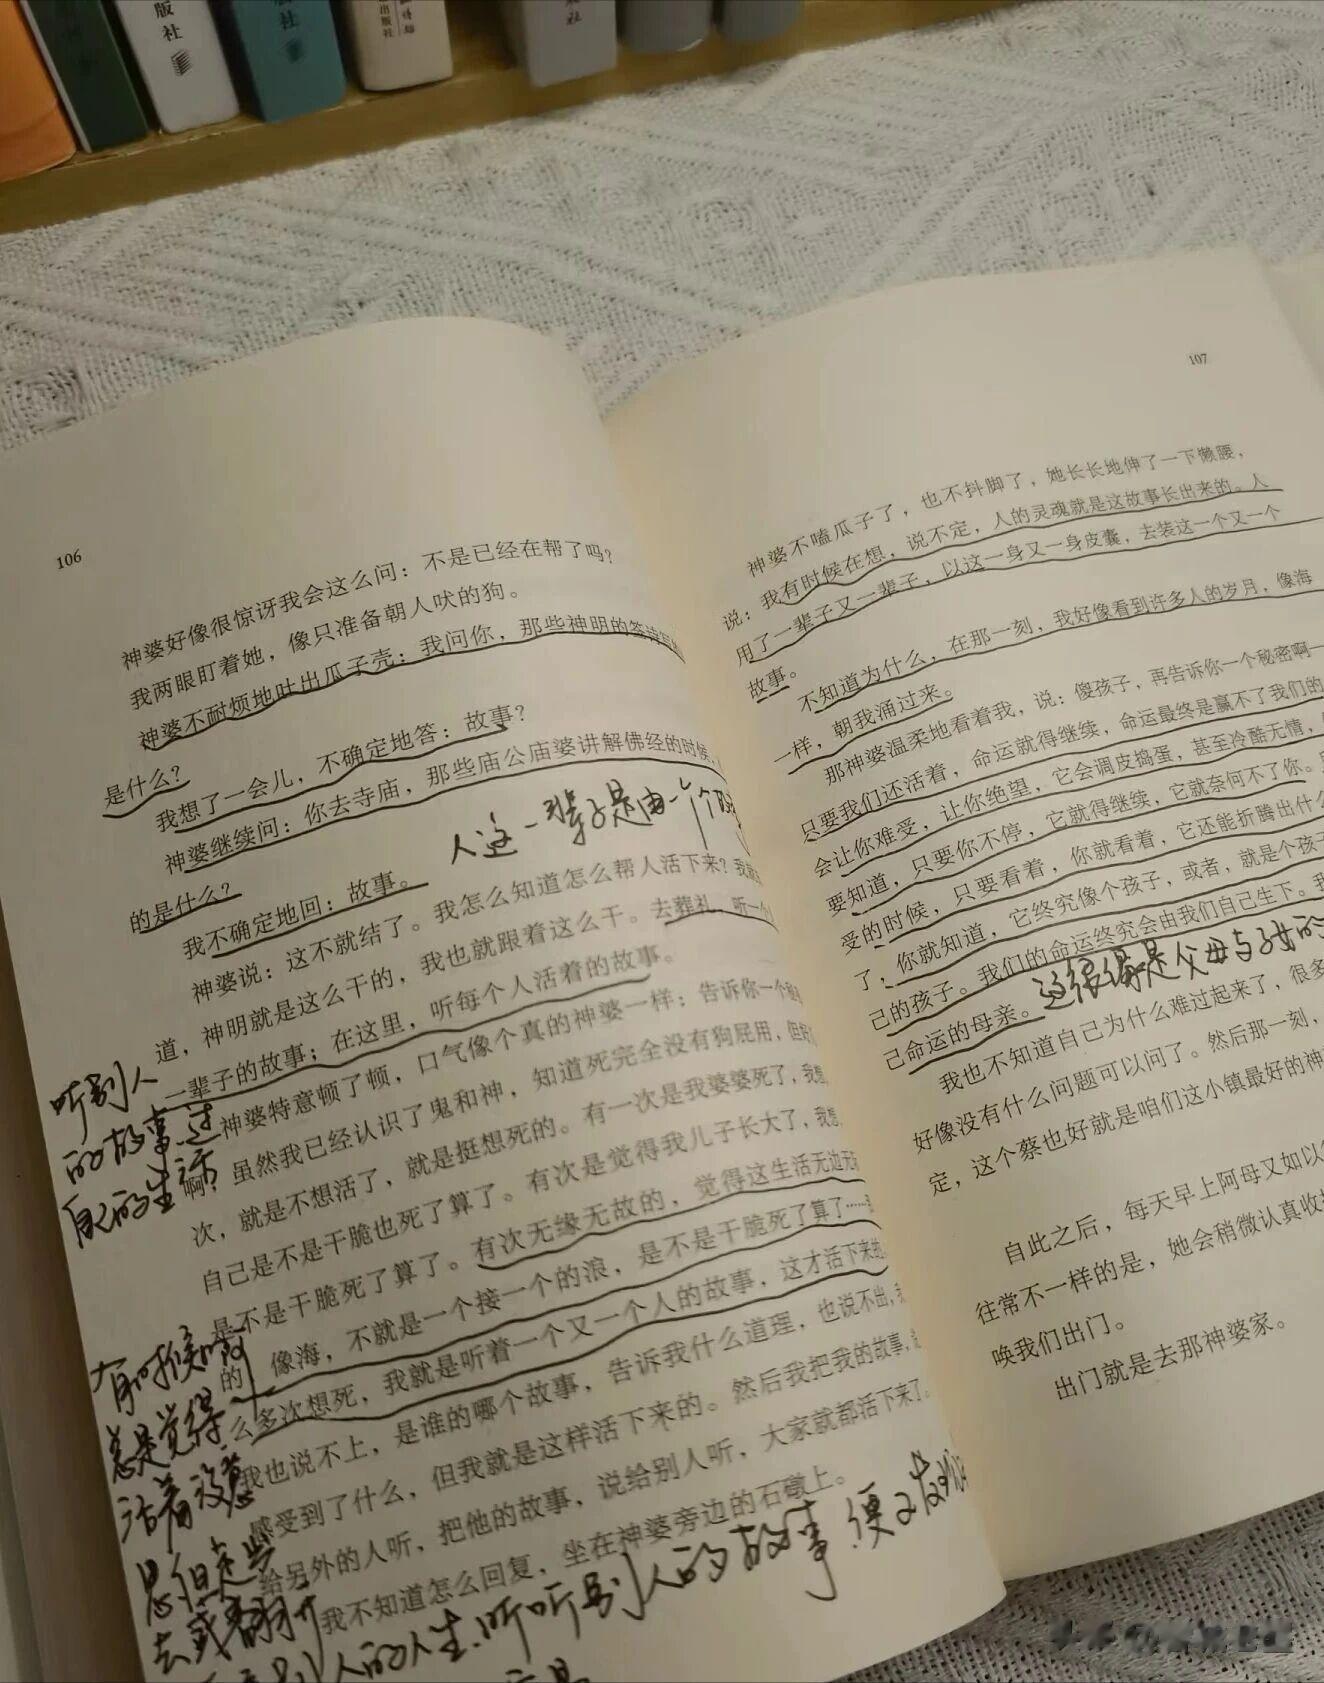 版社
社
出版社
106
神婆好像很惊讶我会这么问：不是已经在帮了吗？
我两眼盯着她，像只准备朝人吠的狗。
神婆不耐烦地吐出瓜子壳：我问你，那些神明的签诗写的
是什么？
我想了一会儿，不确定地答：故事？
神婆继续问：你去寺庙，那些庙公庙婆讲解佛经的时候，
人这一辈子是由一个个
的是什么？
我不确定地回：故事。
神婆说：这不就结了。我怎么知道怎么帮人活下来？我就
道，神明就是这么干的，我也就跟着这么干。去葬礼，听一个
一辈子的故事；在这里，听每个人活着的故事。
听别人
的故事过
自己的生活
神婆特意顿了顿，口气像个真的神婆一样：告诉你一个秘
啊？虽然我已经认识了鬼和神，知道死完全没有狗屁用，但好
次，就是不想活了，就是挺想死的。有一次是我婆婆死了，我想
自己是不是干脆也死了算了。有次是觉得我儿子长大了，我想
是不是干脆死了算了。有次无缘无故的，觉得这生活无边无
的 像海，不就是一个接一个的浪，是不是干脆死了算了……
么多次想死，我就是听着一个又一个人的故事，这才活下来的
我也说不上，是谁的哪个故事，告诉我什么道理，也说不出，我
感受到了什么，但我就是这样活下来的。然后我把我的故事，
给另外的人听，把他的故事，说给别人听，大家就都活下来了。
我不知道怎么回复，坐在神婆旁边的石礅上。
有时候
总是觉得
活着没意
思但是
去或翻开
别人的人生、听听别人的故事，便又
107
神婆不嗑瓜子了，也不抖脚了，她长长地伸了一下懒腰，
说：我有时候在想，说不定，人的灵魂就是这故事长出来的。人
用了一辈子又一辈子，以这一身又一身皮囊，去装这一个又一个
故事。
不知道为什么，在那一刻，我好像看到许多人的岁月，像海
一样，朝我涌过来。
那神婆温柔地看着我，说：傻孩子，再告诉你一个秘密啊——
只要我们还活着，命运就得继续，命运最终是赢不了我们的
会让你难受，让你绝望，它会调皮捣蛋，甚至冷酷无情，
要知道，只要你不停，它就得继续，它就奈何不了你。
受的时候，只要看着，你就看着，它还能折腾出什么
了，你就知道，它终究像个孩子，或者，就是个孩子
己的孩子。我们的命运终究会由我们自己生下。我
己命运的母亲。
这很像是父母与子女的
我也不知道自己为什么难过起来了，很多
好像没有什么问题可以问了。然后那一刻，
定，这个蔡也好就是咱们这小镇最好的神
自此之后，每天早上阿母又如以
往常不一样的是，她会稍微认真收
唤我们出门。
出门就是去那神婆家。